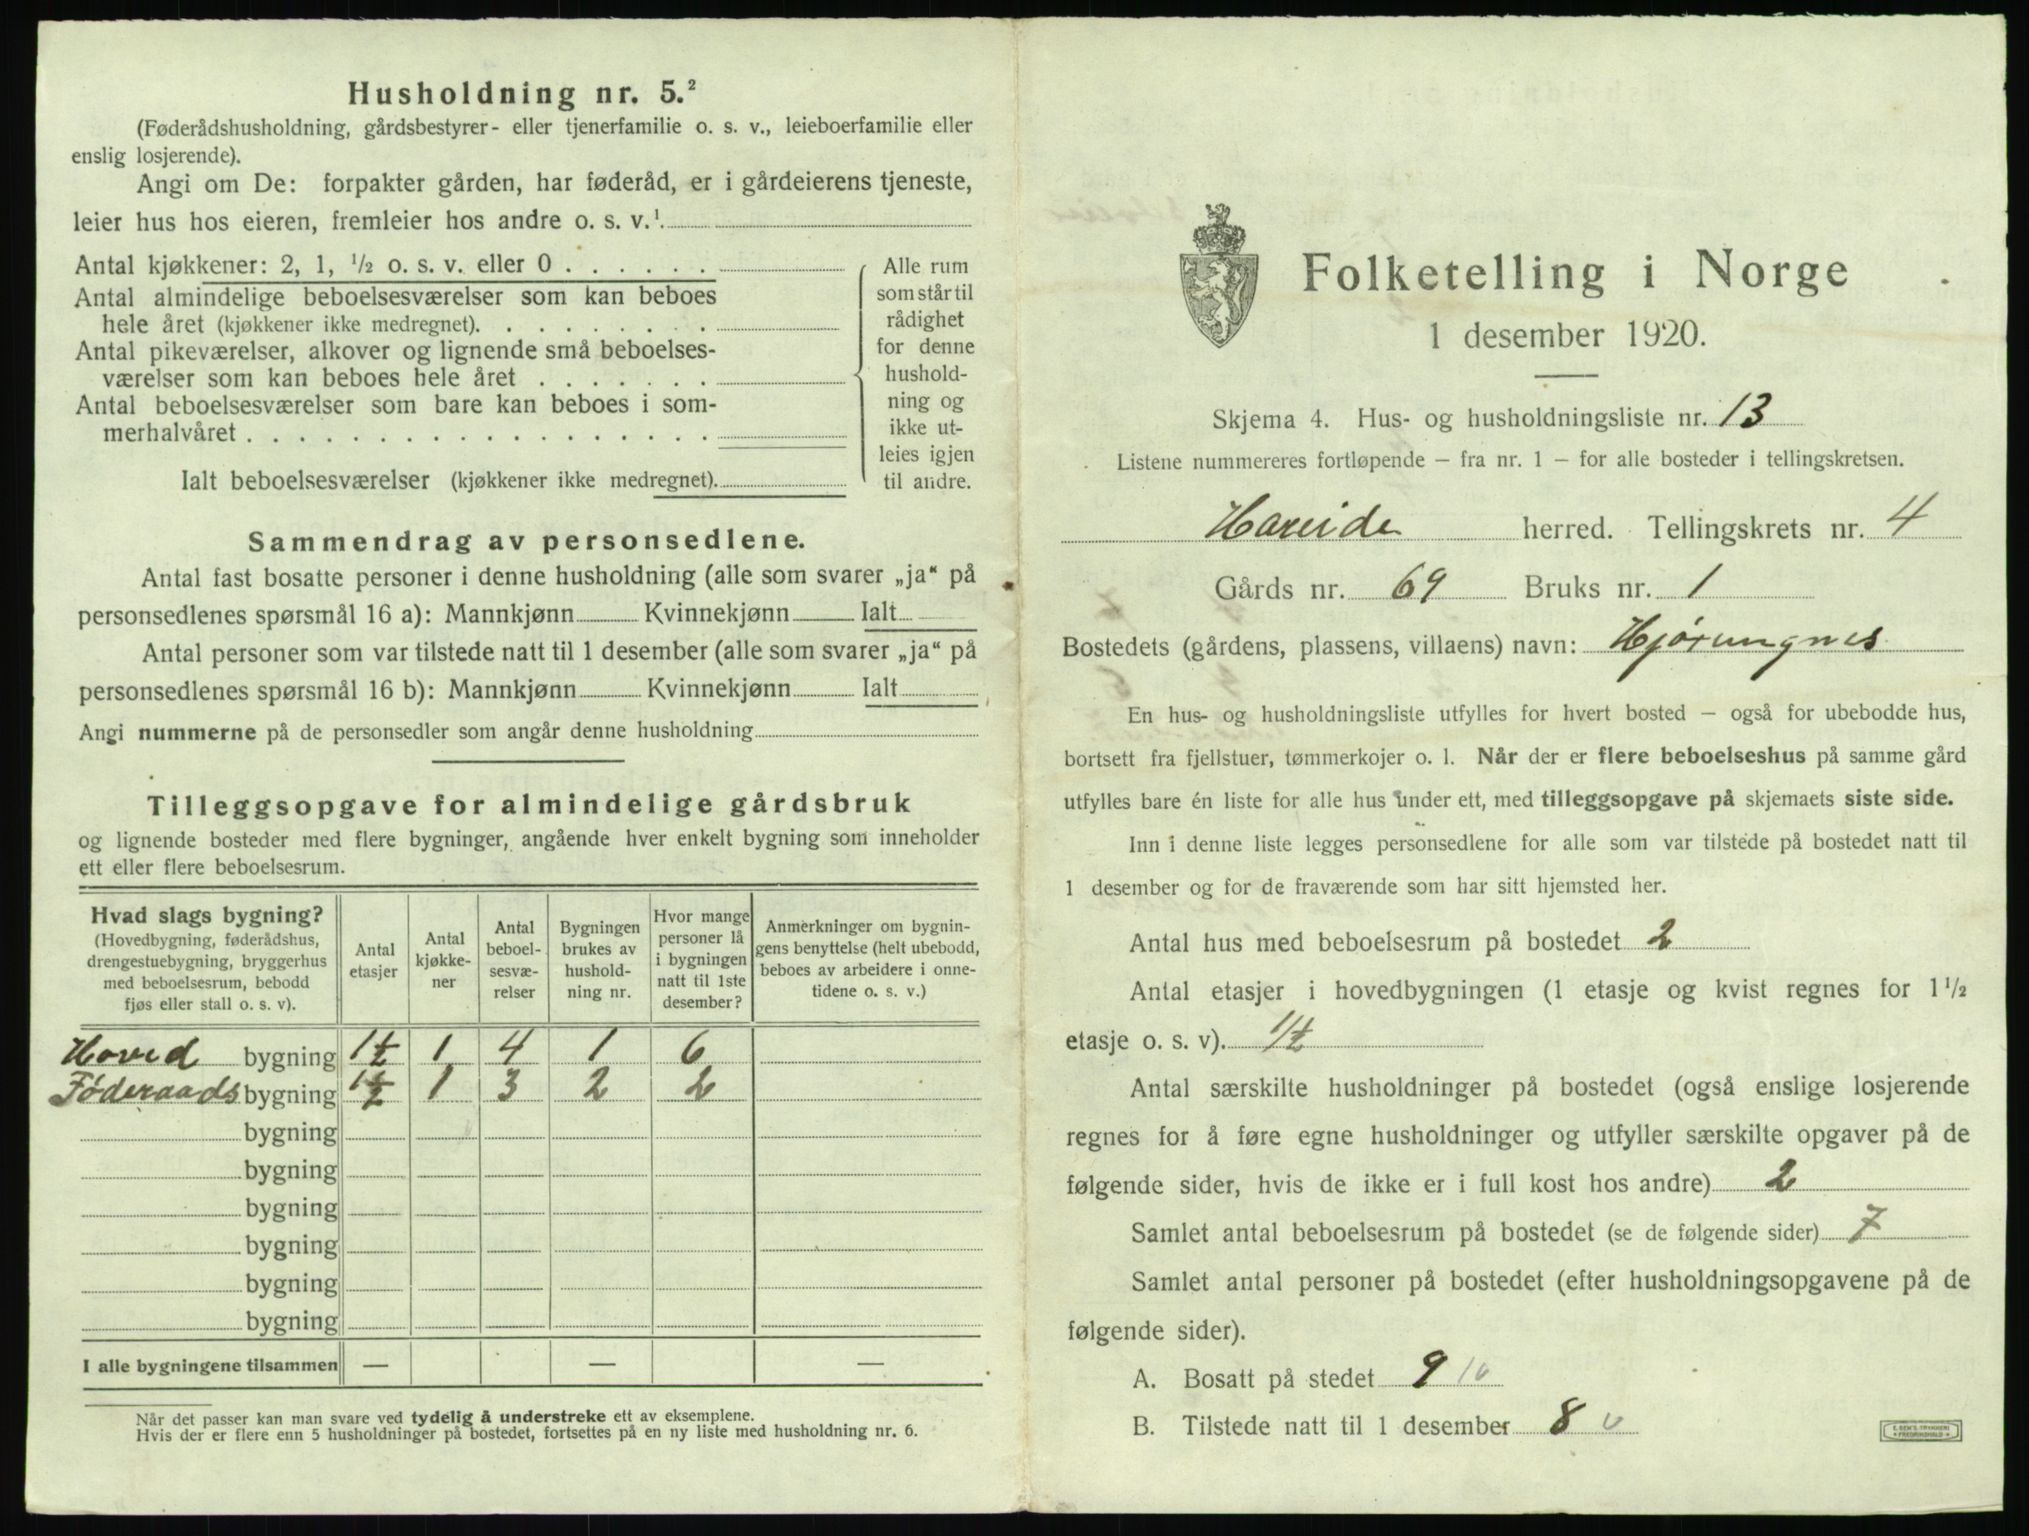 Husholdning nr. 5.²
(Føderådshusholdning, gårdsbestyrer- eller tjenerfamilie o. s. v., leieboerfamilie eller
enslig losjerende).
Angi om De: forpakter gården, har føderåd, er i gårdeierens tjeneste,
leier hus hos eieren, fremleier hos andre o. s. v.¹
Antal kjøkkener: 2, 1, ½ o. s. v. eller 0 . . . . . .
Antal almindelige beboelsesværelser som kan beboes
hele året (kjøkkener ikke medregnet). . . . . . . . .
Antal pikeværelser, alkover og lignende små beboelses-
værelser som kan beboes hele året . . . . . . .
Antal beboelsesværelser som bare kan beboes i som-
merhalvåret . . . . . . . . . . . . . . . . .
Ialt beboelsesværelser (kjøkkener ikke medregnet).
Alle rum
som står til
rådighet
for denne
hushold-
ning og
ikke ut-
leies igjen
til andre.
Sammendrag av personsedlene.
Antal fast bosatte personer i denne husholdning (alle som svarer „ja“ på
personsedlenes spørsmål 16 a): Mannkjønn Kvinnekjønn Ialt
Antal personer som var tilstede natt til 1 desember (alle som svarer „ja“ på
personsedlenes spørsmål 16 b): Mannkjønn Kvinnekjønn Ialt
Angi nummerne på de personsedler som angår denne husholdning
Tilleggsopgave for almindelige gårdsbruk
og lignende bosteder med flere bygninger, angående hver enkelt bygning som inneholder
ett eller flere beboelsesrum.
Hvad slags bygning?
(Hovedbygning, føderådshus,
drengestuebygning, bryggerhus
med beboelsesrum, bebodd
fjøs eller stall o. s. v).
Antal
etasjer
Antal
kjøkke-
ner
Antal
beboel-
sesvæ-
relser
Bygningen
brukes av
hushold-
ning nr.
Hvor mange
personer lå
i bygningen
natt til 1ste
desember?
Anmerkninger om bygnin-
gens benyttelse (helt ubebodd,
beboes av arbeidere i onne-
tidene o. s. v.)
Hoved bygning 1½ 1 4 1 6
Føderaads bygning 1½ 1 3 2 2
bygning
bygning
bygning
bygning
bygning
bygning
I alle bygningene tilsammen — — —
Når det passer kan man svare ved tydelig å understreke ett av eksemplene.
Hvis der er flere enn 5 husholdninger på bostedet, fortsettes på en ny liste med husholdning nr. 6.
Folketelling i Norge
1 desember 1920.
Skjema 4. Hus- og husholdningsliste nr. 13
Listene nummereres fortløpende – fra nr. 1 – for alle bosteder i tellingskretsen.
Hareide herred. Tellingskrets nr. 4
Gårds nr. 69 Bruks nr. 1
Bostedets (gårdens, plassens, villaens) navn: Hjørungnes
En hus- og husholdningsliste utfylles for hvert bosted – også for ubebodde hus,
bortsett fra fjellstuer, tømmerkojer o. l. Når der er flere beboelseshus på samme gård
utfylles bare én liste for alle hus under ett, med tilleggsopgave på skjemaets siste side.
Inn i denne liste legges personsedlene for alle som var tilstede på bostedet natt til
1 desember og for de fraværende som har sitt hjemsted her.
Antal hus med beboelsesrum på bostedet 2
Antal etasjer i hovedbygningen (1 etasje og kvist regnes for 1½
etasje o. s. v). 1½
Antal særskilte husholdninger på bostedet (også enslige losjerende
regnes for å føre egne husholdninger og utfyller særskilte opgaver på de
følgende sider, hvis de ikke er i full kost hos andre) 2
Samlet antal beboelsesrum på bostedet (se de følgende sider) 7
Samlet antal personer på bostedet (efter husholdningsopgavene på de
følgende sider).
A. Bosatt på stedet 9 10
B. Tilstede natt til 1 desember 8